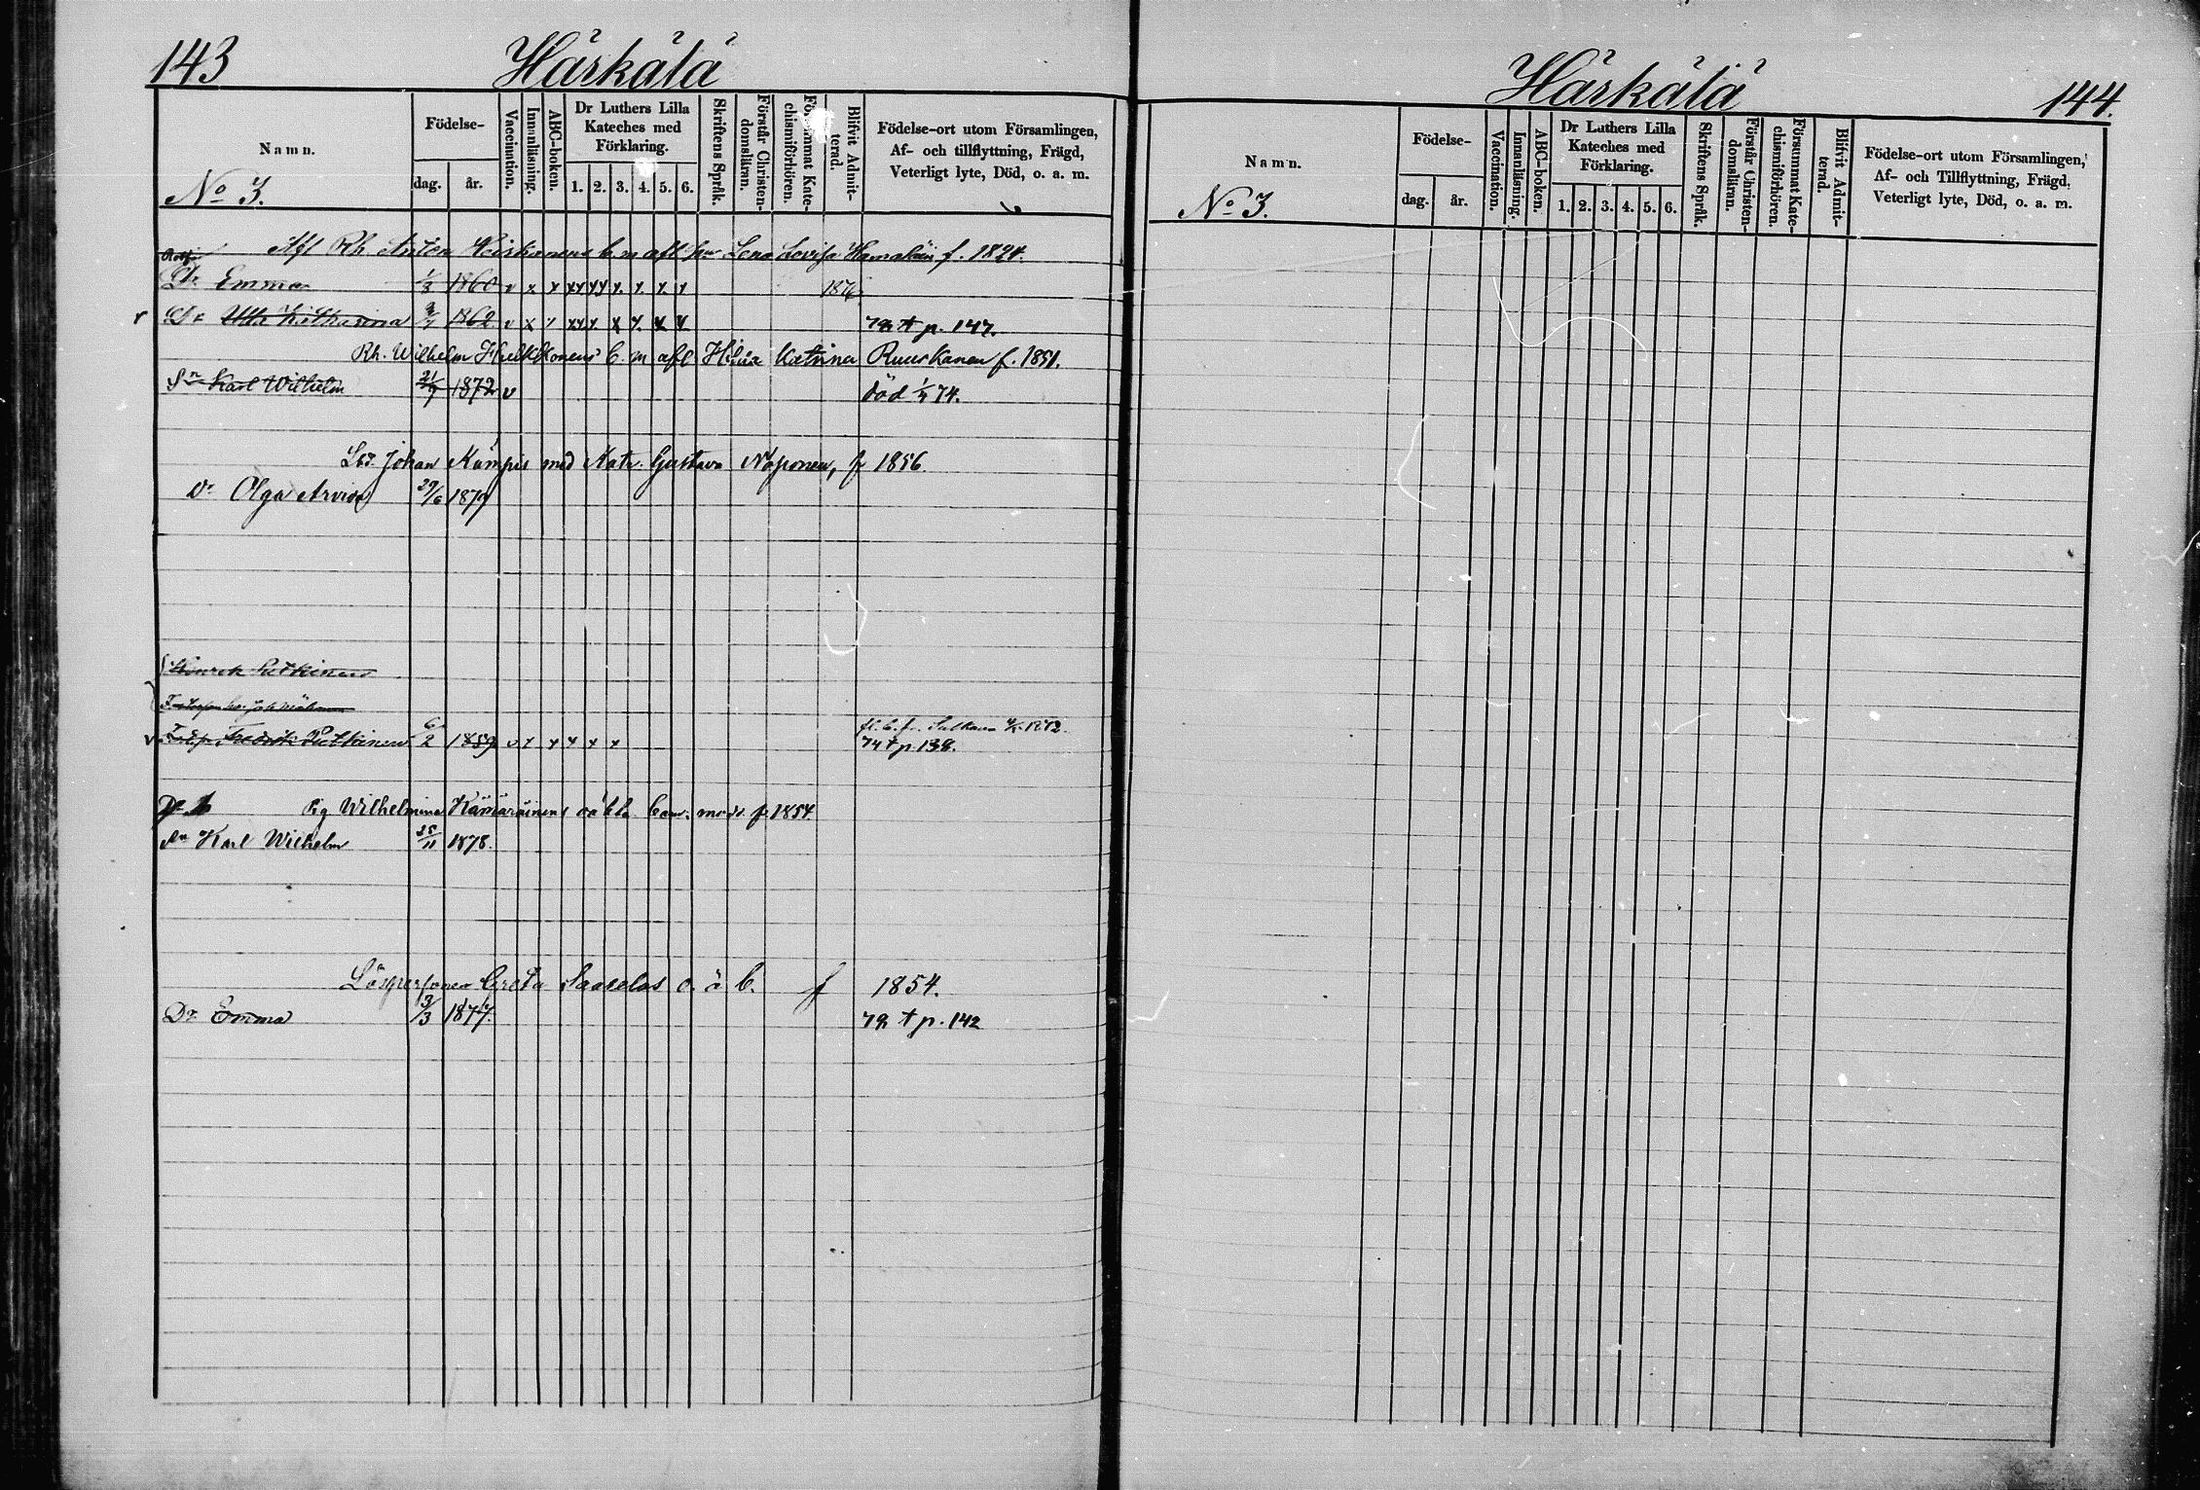 143
Härkälä
Namn.
No 3.
Födelse-
dag.
år.
Vaccination.
Innanläsning.
ABC-boken.
Dr Luthers Lilla
Kateches med
Förklaring.
1. 2. 3. 4. 5. 6.
Skriftens Språk.
Förstår Christen-
domsläran.
Försummat Kate-
chismiförhören.
Blifvit Admit-
terad.
Födelse-ort utom Församlingen,
Af- och tillflyttning, Frägd,
Veterligt lyte, Död, o. a. m.
Afl Rh. Anton b m afl hu Lena Lovisa f. 1824.
Dr Emma 1/3 1860 v x x xx xx x. x. x. x 1876
r Dr Ulla Katharina 1862 v x x xx x x x. x x 79 t p. 147.
Rh. Wilhelm b. m afl Katrina Ruuskanen f. 1851.
Sn Karl Wilhelm 21/7 1872 v död 74.
Johan Kämpis med Katr. Gustava Näponen, f 1856.
Dr Olga Arvida 29/6 1879
Henrik Putkinen
Fredrik Putkinen 6/2 1859 v x x x x x fl. b. fr. Sulkava 1872.
74 t p. 138.
Pig Wilhelmina Kämäräinens oäkta barn. modr. f. 1854.
Sn Karl Wilhelm 25/11 1878.
Löspersonen Greta Saarelas o. ä b. f 1854.
Dr Emma 3/3 1877. 79 t p. 142
Härkälä
144.
Namn.
No 3.
Födelse-
dag.
år.
Vaccination.
Innanläsning.
ABC-boken.
Dr Luthers Lilla
Kateches med
Förklaring.
1. 2. 3. 4. 5. 6.
Skriftens Språk.
Förstår Christen-
domsläran.
Försummat Kate-
chismiförhören.
Blifvit Admit-
terad.
Födelse-ort utom Församlingen,
Af- och Tillflyttning, Frägd,
Veterligt lyte, Död, o. a. m.